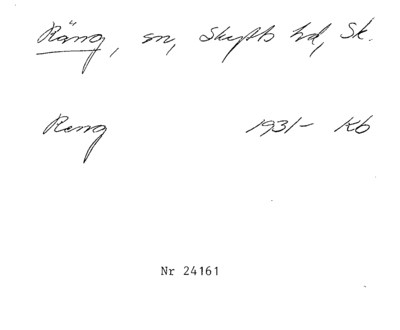 Räng, sn, Skytts hd, Sk.
Reng 1931- Kb
Nr 24161